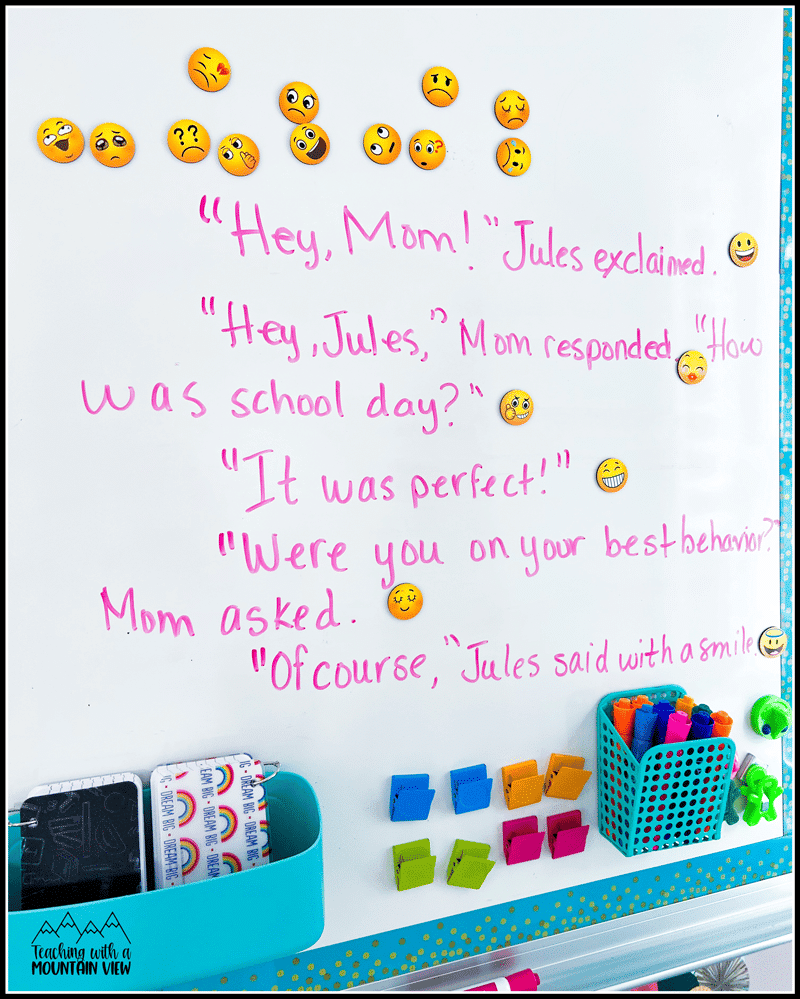 "Hey, Mom!" Jules exclaimed.
"Hey, Jules," Mom responded. "How
was school day?"
"It was perfect!"
"Were you on your best behavior?"
Mom asked.
"Of course," Jules said with a smile.
DREAM BIG
Teaching with a
MOUNTAIN VIEW